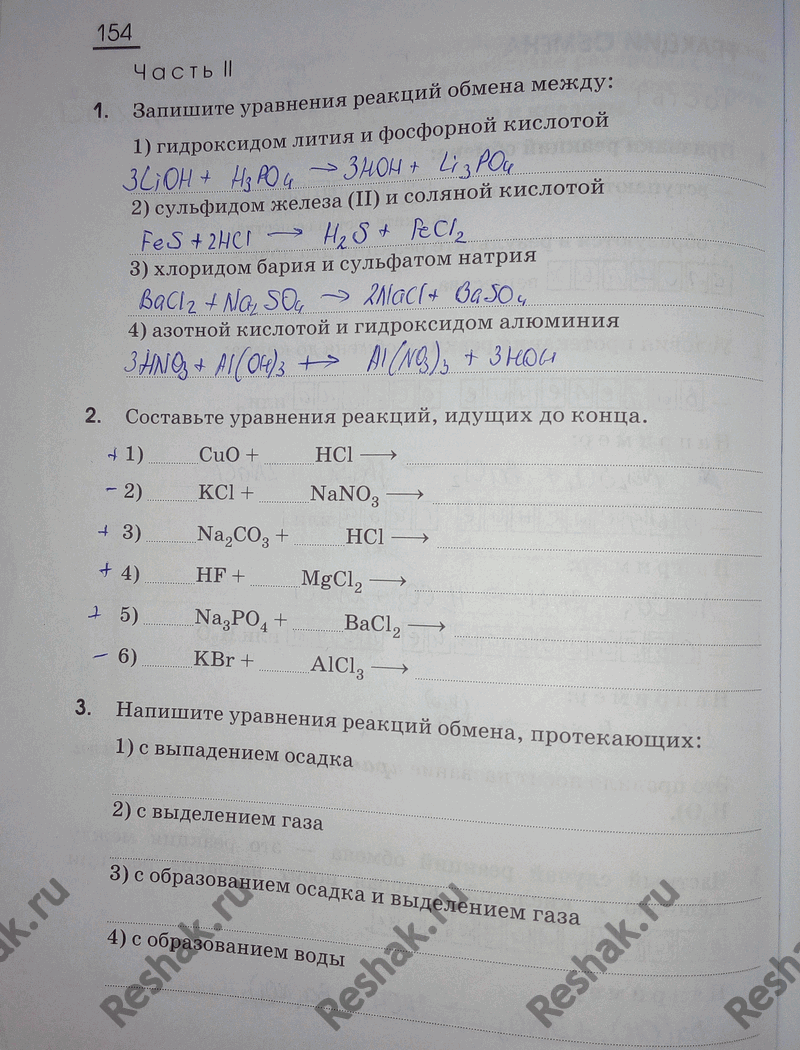 154
Часть II
1. Запишите уравнения реакций обмена между:
1) гидроксидом лития и фосфорной кислотой
3LiOH + H₃PO₄ → 3HOH + Li₃PO₄
2) сульфидом железа (II) и соляной кислотой
FeS + 2HCl → H₂S + FeCl₂
3) хлоридом бария и сульфатом натрия
BaCl₂ + Na₂SO₄ → 2NaCl + BaSO₄
4) азотной кислотой и гидроксидом алюминия
3HNO₃ + Al(OH)₃ ↔ Al(NO₃)₃ + 3HOH
2. Составьте уравнения реакций, идущих до конца.
+ 1) CuO + HCl →
− 2) KCl + NaNO₃ →
+ 3) Na₂CO₃ + HCl →
+ 4) HF + MgCl₂ →
+ 5) Na₃PO₄ + BaCl₂ →
− 6) KBr + AlCl₃ →
3. Напишите уравнения реакций обмена, протекающих:
1) с выпадением осадка
2) с выделением газа
3) с образованием осадка и выделением газа
4) с образованием воды
Reshak.ru
Reshak.ru
Reshak.ru
Reshak.ru
Reshak.ru